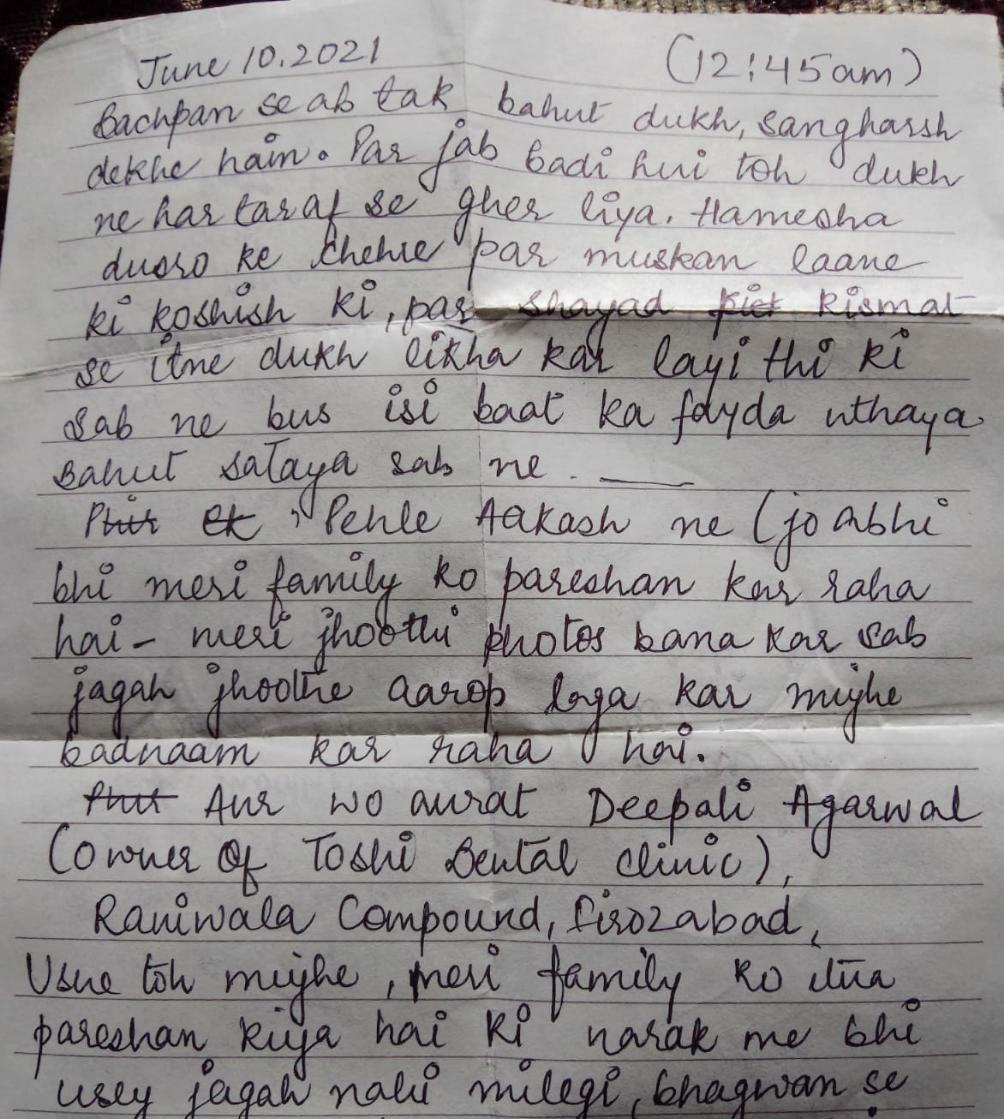 June 10.2021 (12:45am)
Bachpan se ab tak bahut dukh, sangharsh
dekhe hain. Par jab badi hui toh dukh
ne har taraf se gher liya. Hamesha
dusro ke chehre par muskan laane
ki koshish ki, par shayad kismat
se itne dukh likha kar layi thi ki
sab ne bus isi baat ka fayda uthaya.
Bahut sataya sab ne.
Pehle Aakash ne (jo abhi
bhi meri family ko pareshan kar raha
hai- meri jhoothi photos bana kar sab
jagah jhoothe aarop laga kar mujhe
badnaam kar raha hai.
Aur wo aurat Deepali Agarwal
(Owner Of Toshi Dental clinic),
Raniwala Compound, firozabad,
Usne toh mujhe, meri family ko itna
pareshan kiya hai ki narak me bhi
usey jagah nahi milegi, bhagwan se